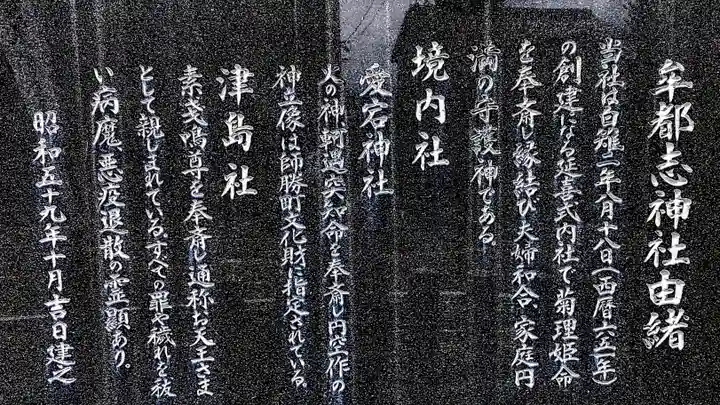 牟都志神社由緒
当社は白雉二年八月十八日(西暦六五一年)
の創建になる延喜式内社で菊理姫命
を奉斎し縁結び夫婦和合、家庭円
満の守護神である。
境内社
愛宕神社
火の神軻遇突知命を奉斎し円空作の
神立像は師勝町文化財に指定されている。
津島社
素戔嗚尊を奉斎し通称お天王さま
として親しまれている。すべての罪や穢れを祓
い病魔、悪疫退散の霊顕あり。
昭和五十九年十月吉日建之